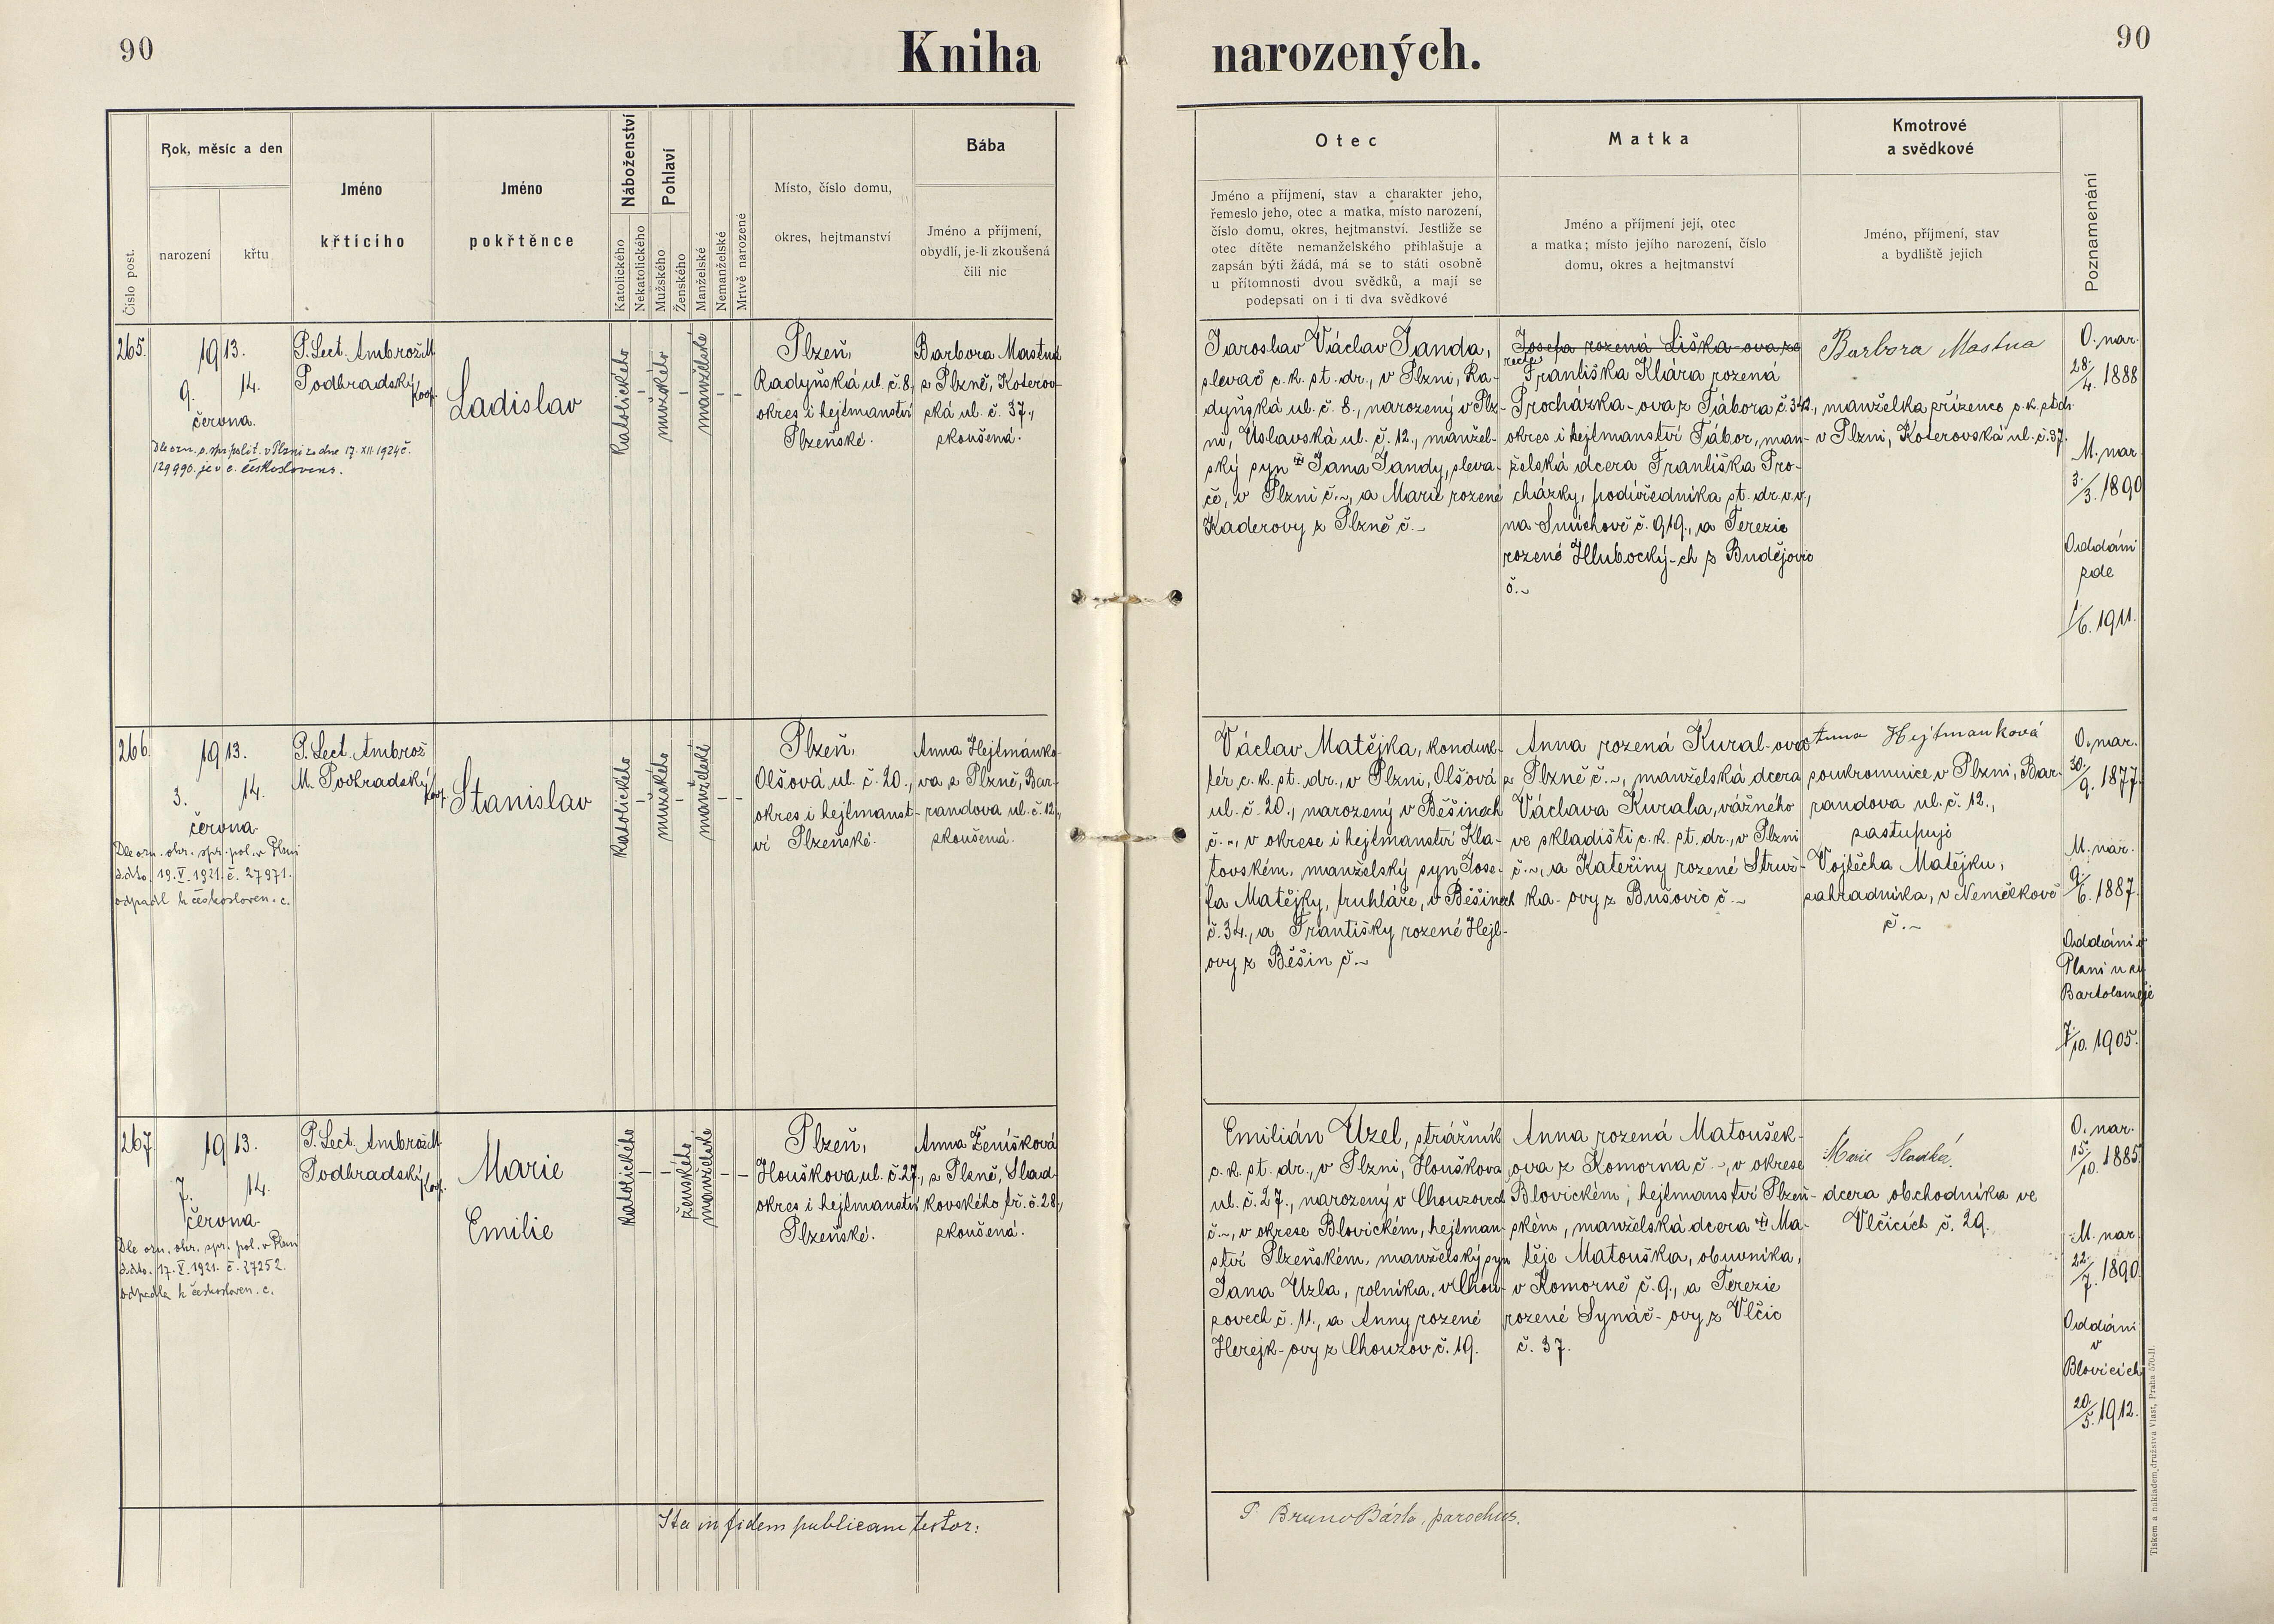 90
Kniha
narozených.
90
Číslo post.
Rok, měsíc a den
narození
křtu
Jméno
křtícího
Jméno
pokřtěnce
Náboženství
Katolického
Nekatolického
Pohlaví
Mužského
Ženského
Manželské
Nemanželské
Mrtvě narozené
Místo, číslo domu,
okres, hejtmanství
Bába
Jméno a příjmení,
obydlí, je-li zkoušená
čili nic
Otec
Jméno a příjmení, stav a charakter jeho,
řemeslo jeho, otec a matka, místo narození,
číslo domu, okres, hejtmanství. Jestliže se
otec dítěte nemanželského přihlašuje a
zapsán býti žádá, má se to státi osobně
u přítomnosti dvou svědků, a mají se
podepsati on i ti dva svědkové
Matka
Jméno a příjmení její, otec
a matka; místo jejího narození, číslo
domu, okres a hejtmanství
Kmotrové
a svědkové
Jméno, příjmení, stav
a bydliště jejich
Poznamenání
265.
1913.
9. 14.
června.
Dle ozn. o. spr. polit. v Plzni ze dne 17. XII. 1924 č.
129990. je v c. českoslovens.
P. Lect. Ambrož M.
Podhradský
Koop.
Ladislav
katolického
–
mužského
–
manželské
–
–
Plzeň,
Radyňská ul. č. 8,
okres i hejtmanství
Plzeňské.
Barbora Mastná
z Plzně, Koterov-
ská ul. č. 37.,
zkoušená.
Jaroslav Václav Janda,
slevač c. k. st. dr., v Plzni, Ra-
dyňská ul. č. 8., narozený v Plz-
ni, Úslavská ul. č. 12., manžel-
ský syn Jana Jandy, sleva-
če, v Plzni č. ~, a Marie rozené
Kaderovy z Plzně č. ~
Josefa rozená Liška-ova ze
recte
Františka Klára rozená
Procházka-ova z Tábora č. 342.,
okres i hejtmanství Tábor, man-
želská dcera Františka Pro-
cházky, podúředníka st. dr. v. v.,
na Smíchově č. 919., a Terezie
rozené Hlubocký-ch z Budějovic
č. ~
Barbora Mastna
manželka zřízence c. k. st. dr.
v Plzni, Koterovská ul. č. 37.
O. nar.
28./4. 1888
M. nar.
3./3. 1890
Oddáni
zde
1./6. 1911.
266.
1913.
3. 14.
června.
Dle ozn. okr. spr. pol. v Plzni
ddto. 19. V. 1921. č. 27971.
odpadl k českosloven. c.
P. Lect. Ambrož
M. Podhradský
Koop.
Stanislav
katolického
–
mužského
–
manželské
–
–
Plzeň,
Olšová ul. č. 20.,
okres i hejtmanst-
ví Plzeňské.
Anna Hejtmánko-
va z Plzně, Bar-
randova ul. č. 12,
zkoušená.
Václav Matějka, konduk-
tér c. k. st. dr., v Plzni, Olšová
ul. č. 20., narozený v Běšinech
č. ~, v okrese i hejtmanství Kla-
tovském, manželský syn Jose-
fa Matějky, truhláře, v Běšinech
č. 34., a Františky rozené Hejl-
ovy z Běšin č. ~
Anna rozená Kural-ova
z Plzně č. ~, manželská dcera
Václava Kurala, vážného
ve skladišti c. k. st. dr., v Plzni
č. ~, a Kateřiny rozené Struž-
ka-ovy z Bušovic č. ~
Anna Hejtmanková
soukromnice v Plzni, Bar-
randova ul. č. 12.,
zastupuje
Vojtěcha Matějku,
zahradníka, v Nemělkově
č. ~
O. nar.
30./9. 1877.
M. nar.
9./6. 1887.
Oddáni v
Plzni u sv.
Bartoloměje
7./10. 1905.
267.
1913.
7. 14.
června.
Dle ozn. okr. spr. pol. v Plzni
ddto. 17. V. 1921. č. 27252.
odpadla k českosloven. c.
P. Lect. Ambrož M.
Podhradský
Koop.
Marie
Emilie
katolického
–
–
ženského
manželské
–
–
Plzeň,
Houškova ul. č. 27.,
okres i hejtmanství
Plzeňské.
Anna Ženíšková
z Plzně, Slad-
kovského tř. č. 28,
zkoušená.
Emilián Uzel, strážník
c. k. st. dr., v Plzni, Houškova
ul. č. 27., narozený v Chouzovech
č. ~, v okrese Blovickém, hejtman-
ství Plzeňském, manželský syn
Jana Uzla, rolníka, v Chou-
zovech č. 11., a Anny rozené
Herejk-ovy z Chouzov č. 19.
Anna rozená Matoušek-
ova z Komorna č. ~, v okrese
Blovickém, hejtmanství Plzeň-
ském, manželská dcera Ma-
těje Matouška, obuvníka,
v Komorně č. 9., a Terezie
rozené Synáč-ovy z Vlčic
č. 37.
Marie Sladká,
dcera obchodníka ve
Vlčicích č. 29.
O. nar.
15./10. 1885.
M. nar.
22./7. 1890.
Oddáni
v
Blovicích
20./5. 1912.
Ita in fidem publicam testor:
P. Bruno Bárta, parochus.
Tiskem a nákladem družstva Vlast, Praha 570-II.